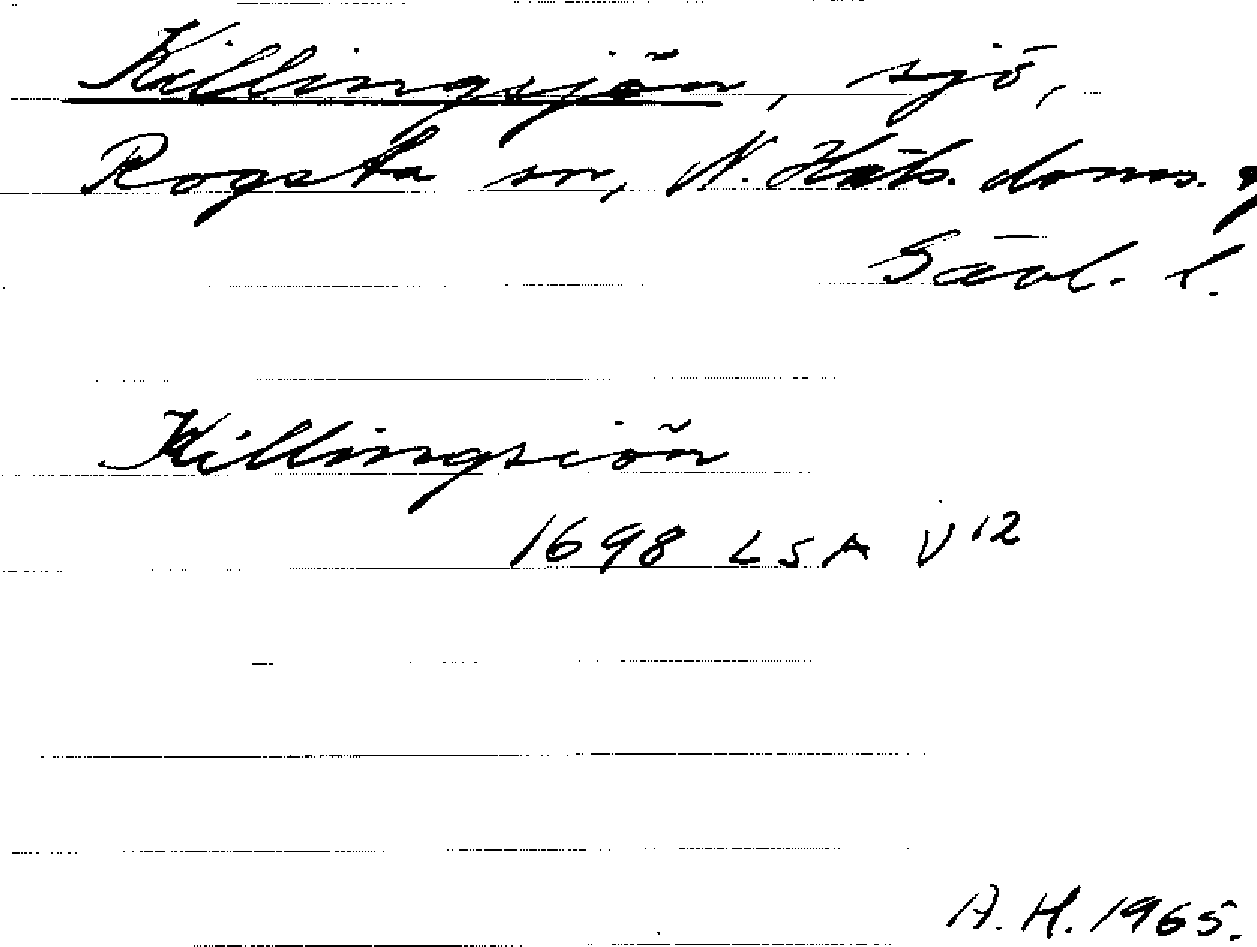 Killingsjön, sjö,
Rogsta sn, N. Häls. doms. g
Gävl. l.
Killingsiön
1698 LSA V12
A.H. 1965.